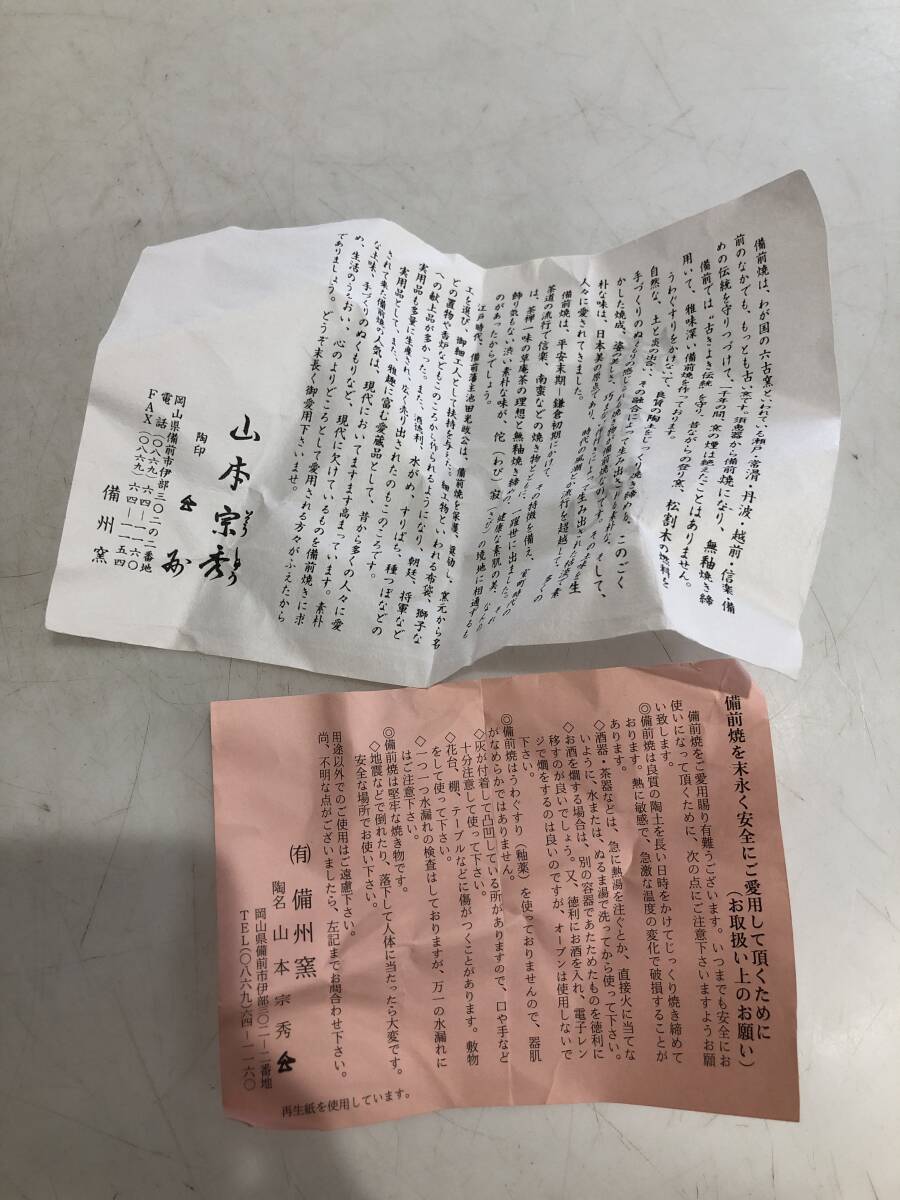 備前焼は、わが国の六古窯といわれている瀬戸・常滑・丹波・越前・信楽・備
前のなかでも、もっとも古い窯です。須恵器から備前焼になり、無釉焼き締
めの伝統を守りつづけて、一千年の間、窯の煙は絶えたことはありません。
備前では“古きよき伝統”を守り、昔ながらの登り窯、松割木の燃料を
用いて、雅味深い備前焼を作っております。
うわぐすりをかけないで、良質の陶土をじっくり焼き締める、このごく
自然な、土と炎の出会い、その融合によって生み出される素朴な、
手づくりのぬくもりの感じられる焼き物が備前焼なのです。その土味を生
かした焼成、姿の美しさ、
朴な味は、日本美の原点であり、時代の風潮とか流行を超越して、多くの
人々に愛されてきました。
備前焼は、平安末期、鎌倉初期にかけて、その特徴を備え、室町時代の
茶道の流行で信楽、南蛮などの焼き物とともに、一躍世に出ました。
は、茶禅一味の草庵茶の理想と無釉焼き締めの、健康な素肌の美、なんの
飾り気もない渋い素朴な味が、侘(わび)寂(さび)の境地に相通ずるも
のがあったからでしょう。
江戸時代、備前藩主池田光政公は、備前焼を保護、奨励し、窯元から名
工を選び、御細工人として扶持を与えた。細工物といわれる布袋、獅子な
どの置物や香炉などもこのころから作られるようになり、朝廷、将軍など
への献上品が多かった。また、酒徳利、水がめ、すりばち、種つぼなどの
実用品も多量に生産され、広く売り出されたのもこのころです。
実用品として、また、雅趣に富む愛蔵品として、昔から多くの人々に愛
されて来た備前焼の人気は、現代においてますます高まっています。素朴
な土味、手づくりのぬくもりなど、現代に欠けているものを備前焼きに求
め、生活のうるおい、心のよりどころとして愛用される方々がふえたから
でありましょう。どうぞ末長く御愛用下さいませ。
山本宗秀
そうしゅう
陶印
岡山県備前市伊部三〇二の二番地
電話(〇八六九)六四―一一六〇
FAX(〇八六九)六四―一一五四
備州窯
備前焼を末永く安全にご愛用して頂くために
(お取扱い上のお願い)
備前焼をご愛用賜り有難うございます。いつまでも安全にお
使いになって頂くために、次の点にご注意下さいますようお願
い致します。
◎備前焼は良質の陶土を長い日時をかけてじっくり焼き締めて
おります。熱に敏感で、急激な温度の変化で破損することが
あります。
◇酒器・茶器などは、急に熱湯を注ぐとか、直接火に当てな
いように、水または、ぬるま湯で洗ってから使って下さい。
◇お酒を燗する場合は、別の容器であたためたものを徳利に
移すのが良いでしょう。又、徳利にお酒を入れ、電子レン
ジで燗をするのは良いのですが、オーブンは使用しないで
下さい。
◎備前焼はうわぐすり(釉薬)を使っておりませんので、器肌
がなめらかではありません。
◇灰が付着して凸凹している所がありますので、口や手など
十分注意して使って下さい。
◇花台、棚、テーブルなどに傷がつくことがあります。敷物
をして使って下さい。
◇一つ一つ水漏れの検査はしておりますが、万一の水漏れに
はご注意下さい。
◎備前焼は堅牢な焼き物です。
◇地震などで倒れたり、落下して人体に当たったら大変です。
安全な場所でお使い下さい。
用途以外でのご使用はご遠慮下さい。
尚、不明な点がございましたら、左記までお問合わせ下さい。
(有)備州窯
陶名 山本宗秀
岡山県備前市伊部三〇二―二番地
TEL(〇八六九)六四―一一六〇
再生紙を使用しています。